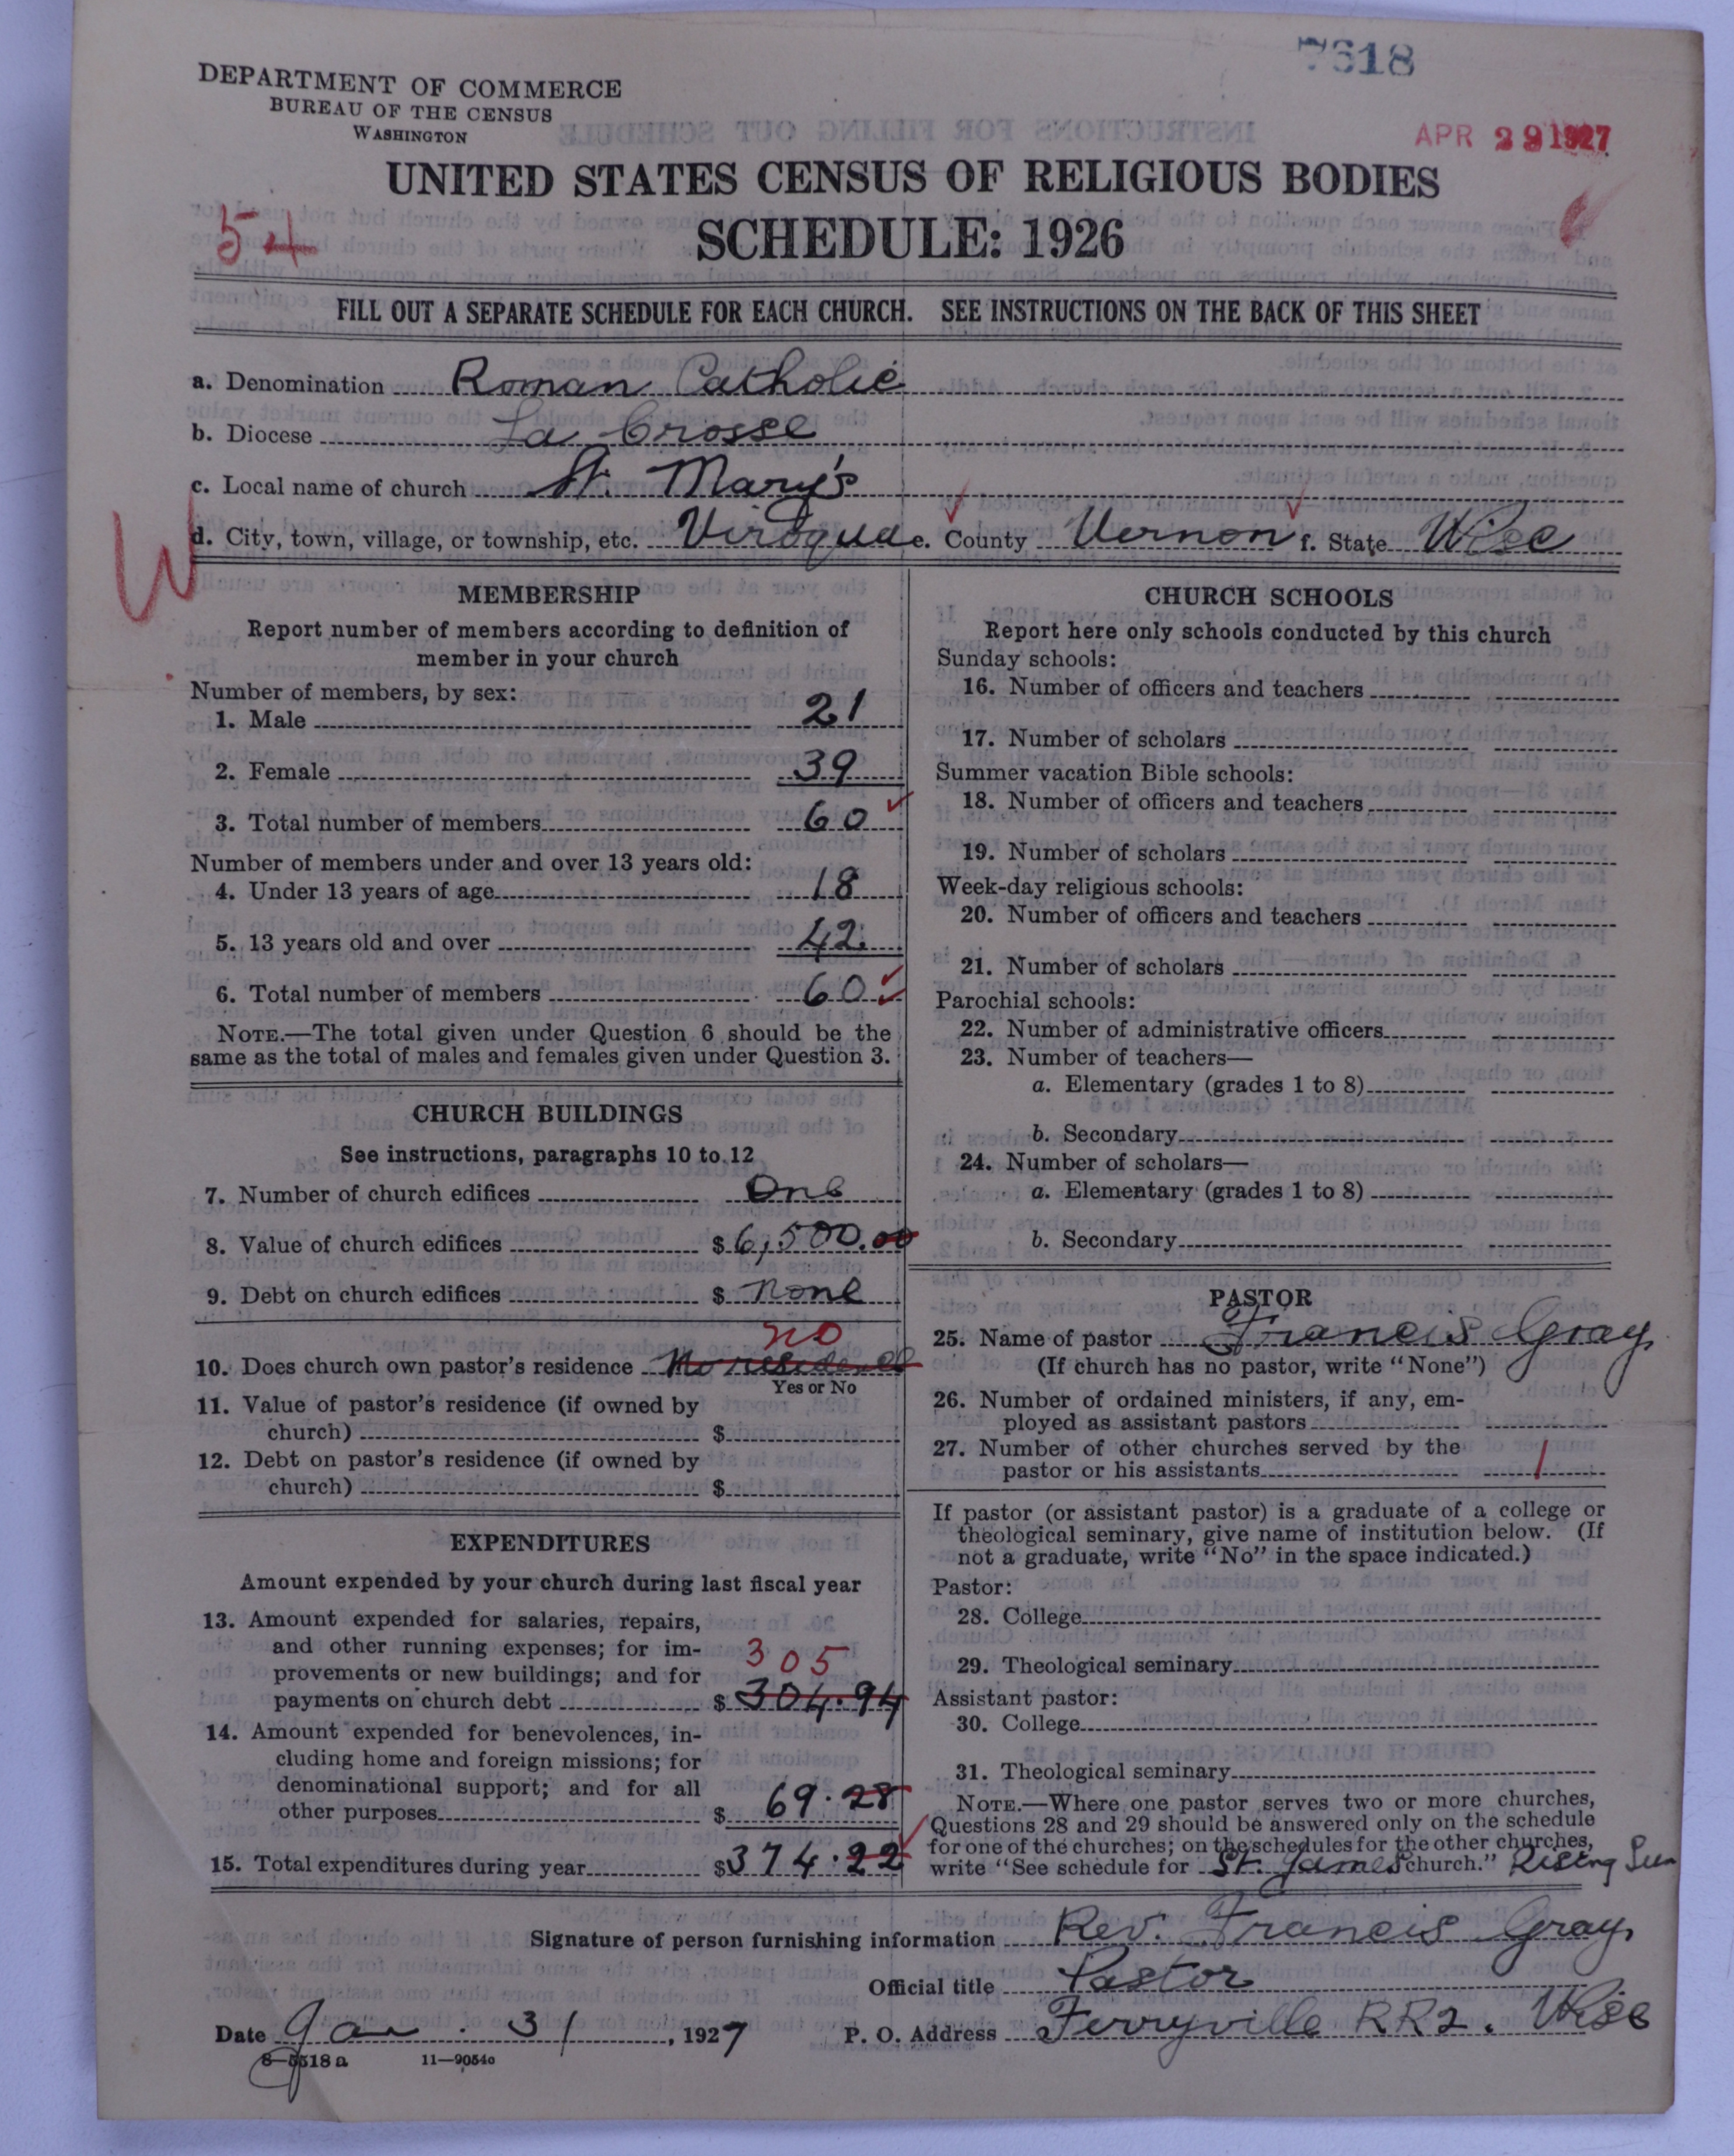 7618
DEPARTMENT OF COMMERCE
BUREAU OF THE CENSUS
WASHINGTON
APR 29 1927
UNITED STATES CENSUS OF RELIGIOUS BODIES
SCHEDULE: 1926
54
FILL OUT A SEPARATE SCHEDULE FOR EACH CHURCH. SEE INSTRUCTIONS ON THE BACK OF THIS SHEET
a. Denomination Roman Catholic
b. Diocese La Crosse
c. Local name of church St. Mary's
d. City, town, village, or township, etc. Viroqua e. County Vernon f. State Wisc
W
MEMBERSHIP
Report number of members according to definition of
member in your church
Number of members, by sex:
1. Male 21
2. Female 39
3. Total number of members 60
Number of members under and over 13 years old:
4. Under 13 years of age 18
5. 13 years old and over 42
6. Total number of members 60
NOTE.—The total given under Question 6 should be the
same as the total of males and females given under Question 3.
CHURCH BUILDINGS
See instructions, paragraphs 10 to 12
7. Number of church edifices One
8. Value of church edifices $ 6,500.00
9. Debt on church edifices $ None
no
10. Does church own pastor's residence No residence
Yes or No
11. Value of pastor's residence (if owned by
church) $
12. Debt on pastor's residence (if owned by
church) $
EXPENDITURES
Amount expended by your church during last fiscal year
13. Amount expended for salaries, repairs,
and other running expenses; for im-
provements or new buildings; and for 305
payments on church debt $ 304.94
14. Amount expended for benevolences, in-
cluding home and foreign missions; for
denominational support; and for all
other purposes $ 69.28
15. Total expenditures during year $ 374.22
CHURCH SCHOOLS
Report here only schools conducted by this church
Sunday schools:
16. Number of officers and teachers
17. Number of scholars
Summer vacation Bible schools:
18. Number of officers and teachers
19. Number of scholars
Week-day religious schools:
20. Number of officers and teachers
21. Number of scholars
Parochial schools:
22. Number of administrative officers
23. Number of teachers—
a. Elementary (grades 1 to 8)
b. Secondary
24. Number of scholars—
a. Elementary (grades 1 to 8)
b. Secondary
PASTOR
25. Name of pastor Francis Gray
(If church has no pastor, write "None")
26. Number of ordained ministers, if any, em-
ployed as assistant pastors
27. Number of other churches served by the
pastor or his assistants 1
If pastor (or assistant pastor) is a graduate of a college or
theological seminary, give name of institution below. (If
not a graduate, write "No" in the space indicated.)
Pastor:
28. College
29. Theological seminary
Assistant pastor:
30. College
31. Theological seminary
NOTE.—Where one pastor serves two or more churches,
Questions 28 and 29 should be answered only on the schedule
for one of the churches; on the schedules for the other churches,
write "See schedule for St. James church." Rising Sun
Signature of person furnishing information Rev. Francis Gray
Official title Pastor
Date Jan. 31, 1927 P. O. Address Ferryville RR2. Wisc
8—5518 a 11—9054c